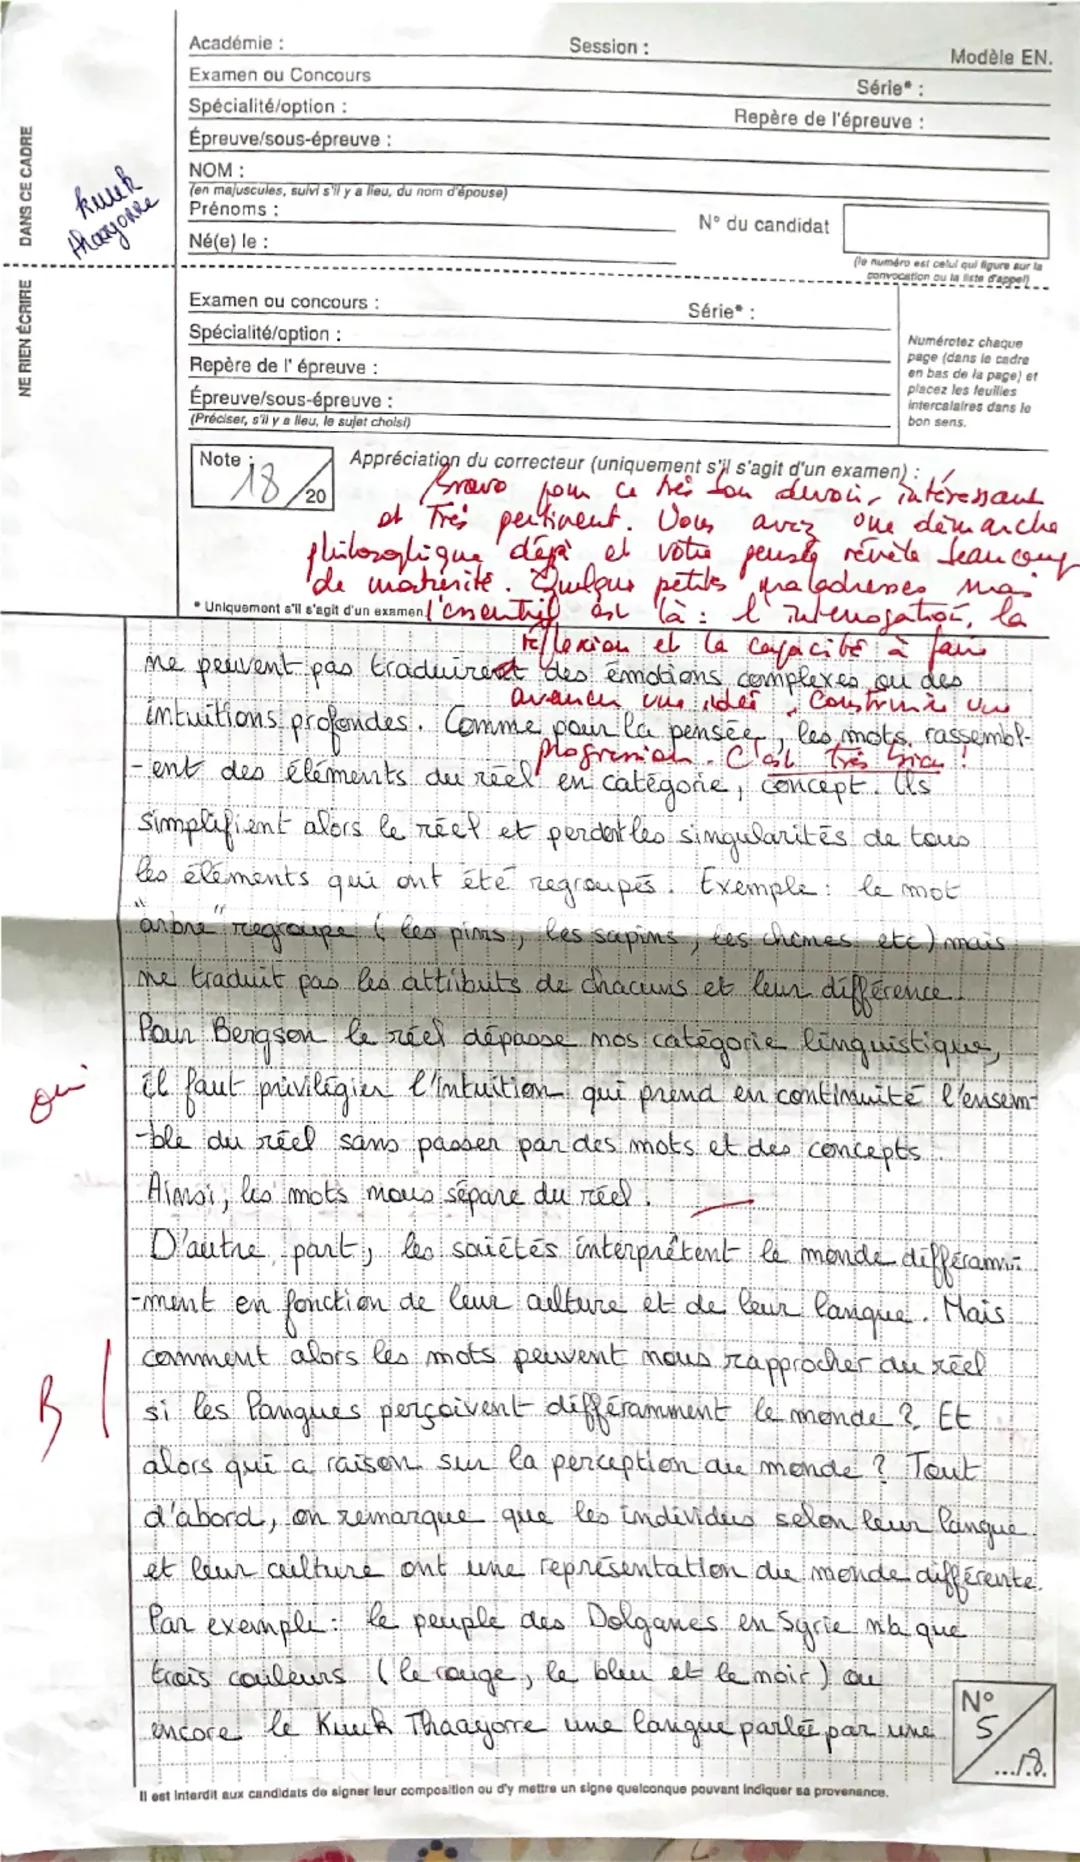 Académie :
Session :
Modèle EN.
Examen ou Concours
Série* :
Spécialité/option :
Repère de l'épreuve :
Épreuve/sous-épreuve :
NOM :
(en majuscules, suivi s'il y a lieu, du nom d'épouse)
Prénoms :
N° du candidat
Né(e) le :
(le numéro est celui qui figure sur la convocation ou la liste d'appel)
DANS CE CADRE
kuuk
thaayorre
NE RIEN ÉCRIRE
Examen ou concours :
Série* :
Spécialité/option :
Repère de l' épreuve :
Épreuve/sous-épreuve :
(Préciser, s'il y a lieu, le sujet choisi)
Numérotez chaque
page (dans le cadre
en bas de la page) et
placez les feuilles
intercalaires dans le
bon sens.
Note :
18/20
Appréciation du correcteur (uniquement s'il s'agit d'un examen) :
Bravo pour ce très bon devoir, intéressant
et très pertinent. Vous avez une démarche
philosophique déjà et votre pensée révèle beaucoup
de maturité. Quelques petites maladresses mais
* Uniquement s'il s'agit d'un examen
l'essentiel est là : l'interrogation, la
réflexion et la capacité à faire
avancer une idée, construire une
progression. C'est très bien !
ne peuvent pas traduire des émotions complexes ou des
intuitions profondes. Comme pour la pensée, les mots rassembl-
-ent des éléments du réel en catégorie, concept. Ils
simplifient alors le réel et perdent les singularités de tous
les éléments qui ont été regroupés. Exemple : le mot
"arbre" regroupe ( les pins, les sapins, les chênes etc) mais
ne traduit pas les attributs de chacuns et leur différence.
Pour Bergson le réel dépasse nos catégorie linguistique,
il faut privilégier l'intuition qui prend en continuité l'ensem-
-ble du réel sans passer par des mots et des concepts.
oui
Ainsi, les mots nous sépare du réel.
D'autre part, les sociétés interprètent le monde différam-
-ment en fonction de leur culture et de leur langue. Mais
comment alors les mots peuvent nous rapprocher du réel
B
si les langues perçoivent différamment le monde ? Et
alors qui a raison sur la perception du monde ? Tout
d'abord, on remarque que les individus selon leur langue
et leur culture ont une représentation du monde différente.
Par exemple : le peuple des Dolganes en Syrie n'a que
trois couleurs ( le rouge, le bleu et le noir ) ou
encore le Kuuk Thaayorre une langue parlée par une
N°
5
Il est interdit aux candidats de signer leur composition ou d'y mettre un signe quelconque pouvant indiquer sa provenance.